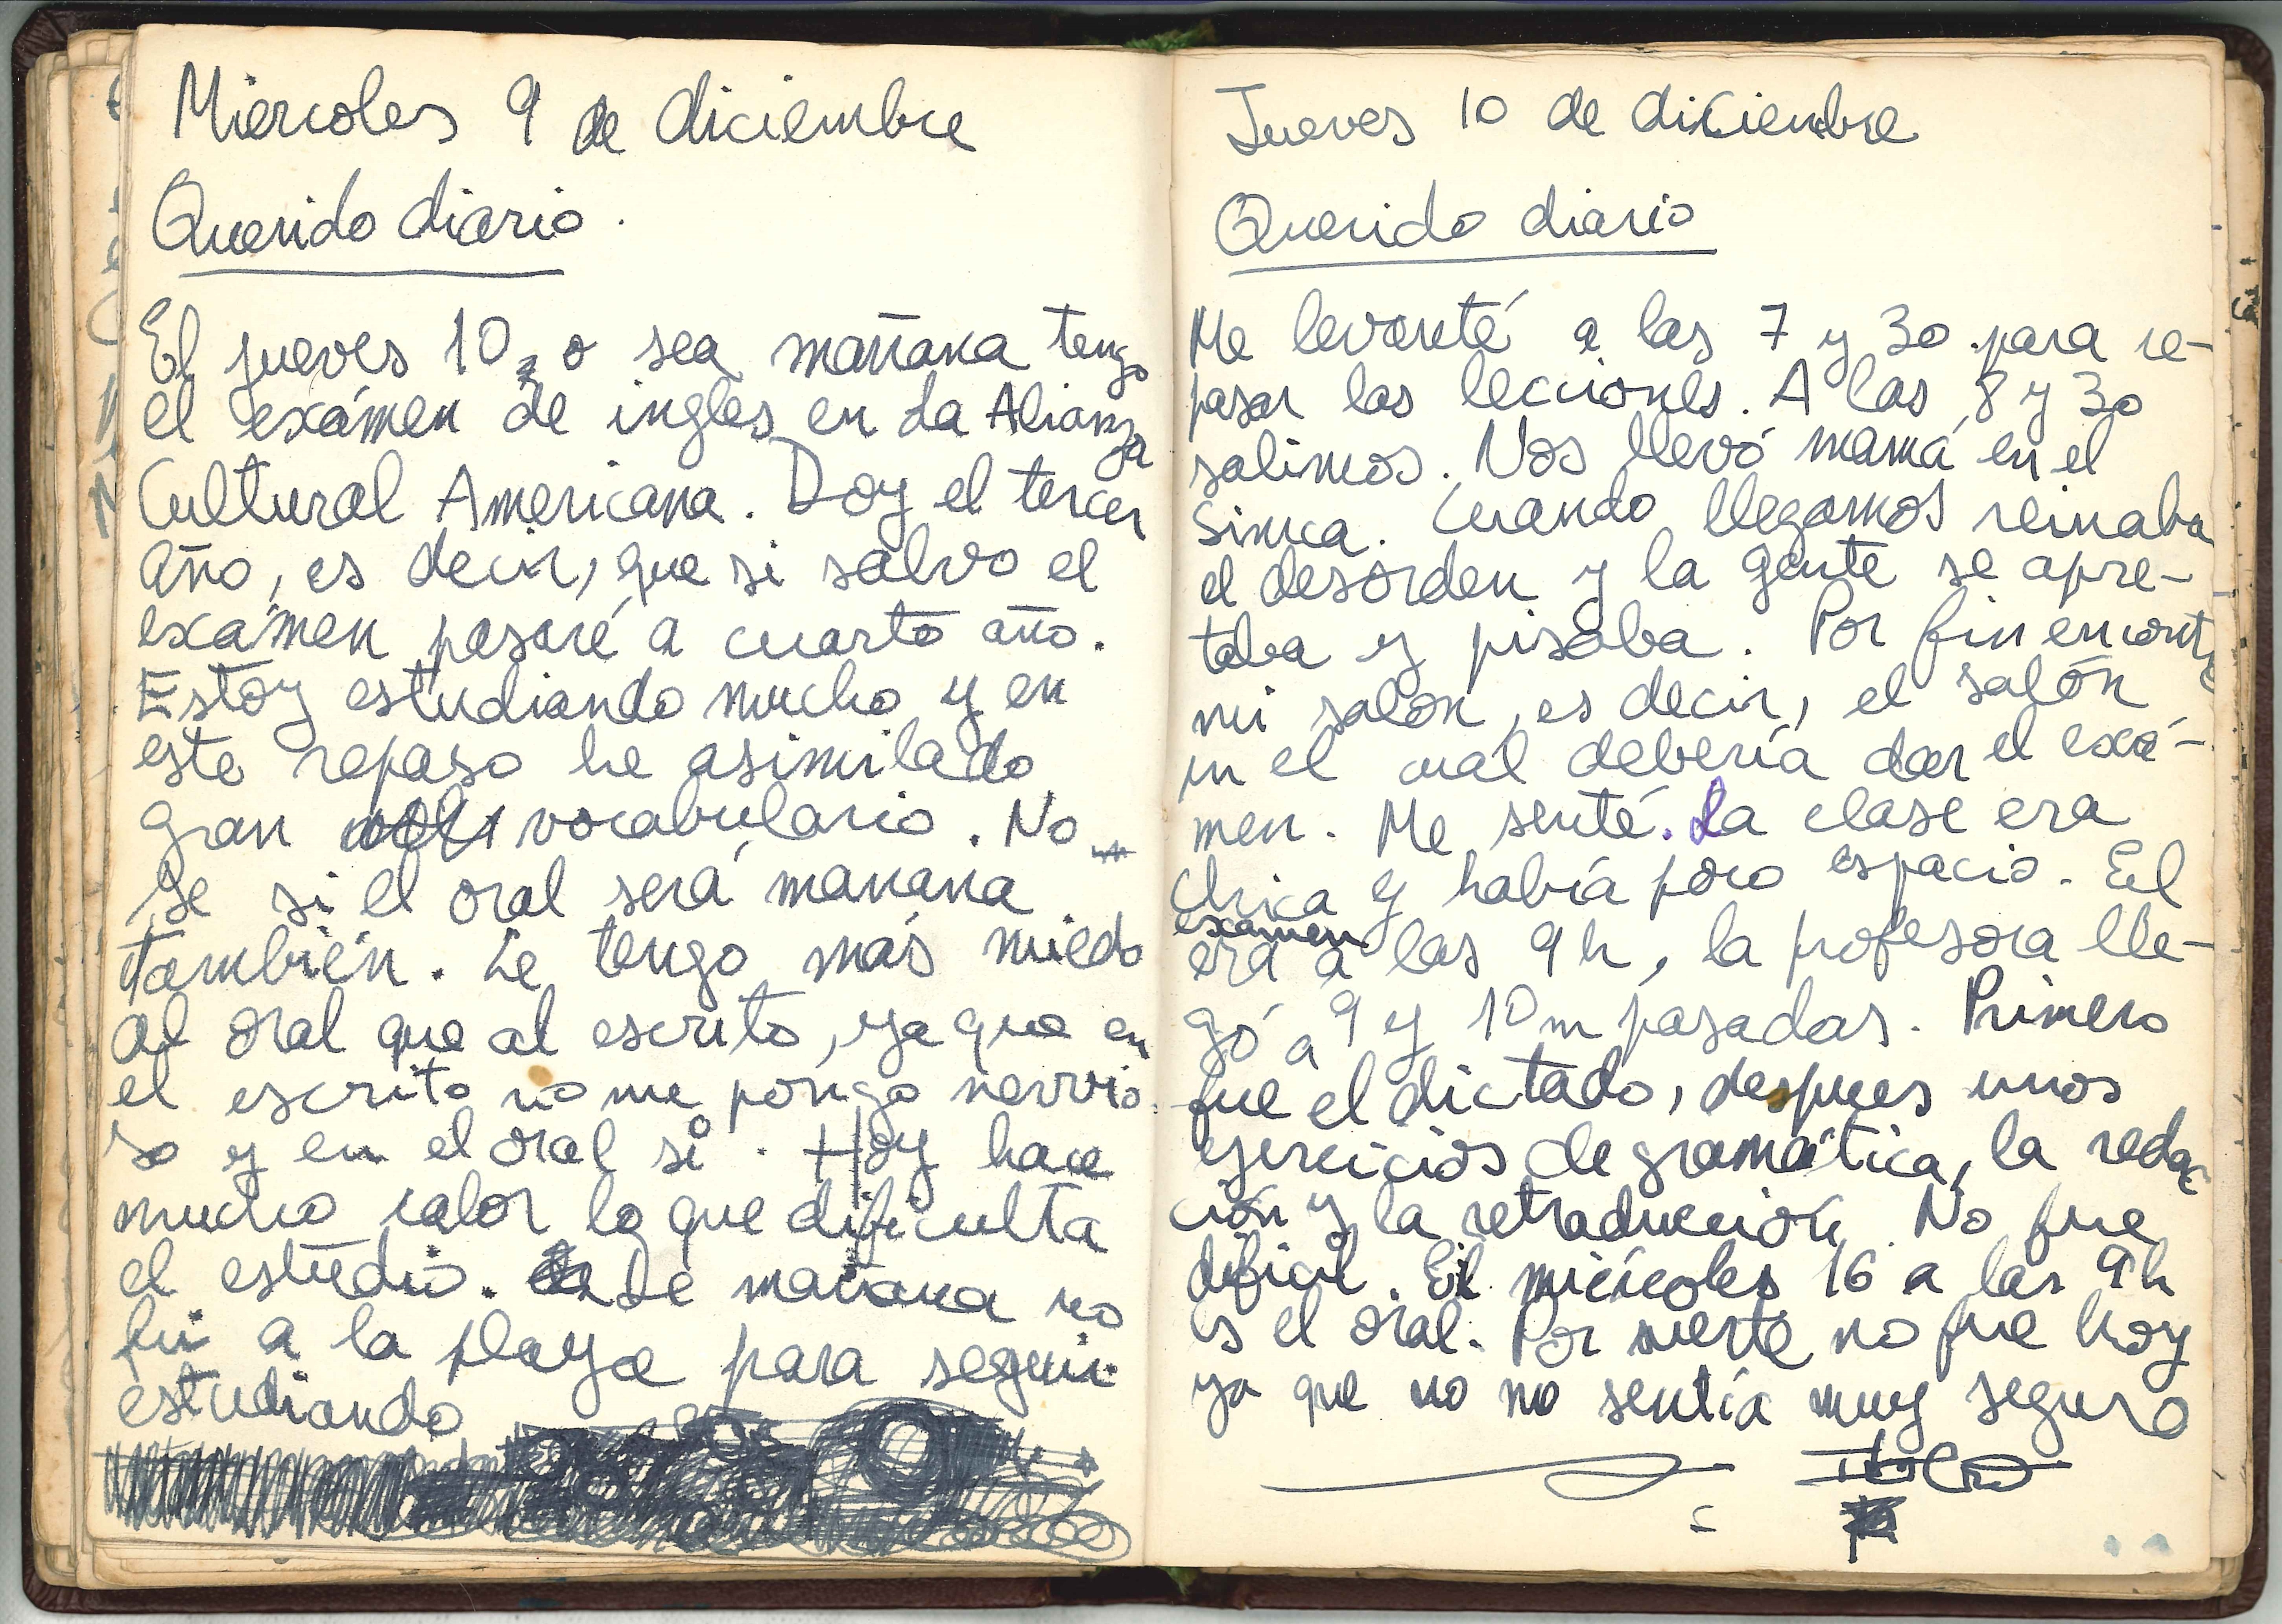 Miercoles 9 de diciembre
Querido diario.
El jueves 10, o sea mañana tengo
el exámen de ingles en La Alianza
Cultural Americana. Doy el tercer
año, es decir, que si salvo el
exámen pasaré a cuarto año.
Estoy estudiando mucho y en
este repaso he asimilado
gran vocabulario. No
se si el oral será manana
también. Le tengo más miedo
al oral que al escrito, ya que en
el escrito no me pongo nervio-
so y en el oral si. Hoy hace
mucho calor lo que dificulta
el estudio. De mañana no
fui a la playa para seguir
estudiando
Jueves 10 de diciembre
Querido diario
Me levanté a las 7 y 30 para re-
pasar las lecciones. A las 8 y 30
salimos. Nos llevó mamá en el
Simca. Cuando llegamos reinaba
el desorden y la gente se apre-
taba y pisaba. Por fin encontré
mi salón, es decir, el salón
en el cual debería dar el exá-
men. Me senté. La clase era
chica y había poco espacio. El
examen
era a las 9 h, la profesora lle-
gó a 9 y 10 m pasadas. Primero
fue el dictado, despues unos
ejercicios de gramática, la redac-
ción y la retraducción. No fue
dificil. El miércoles 16 a las 9 h
es el oral. Por suerte no fue hoy
ya que no no sentía muy seguro